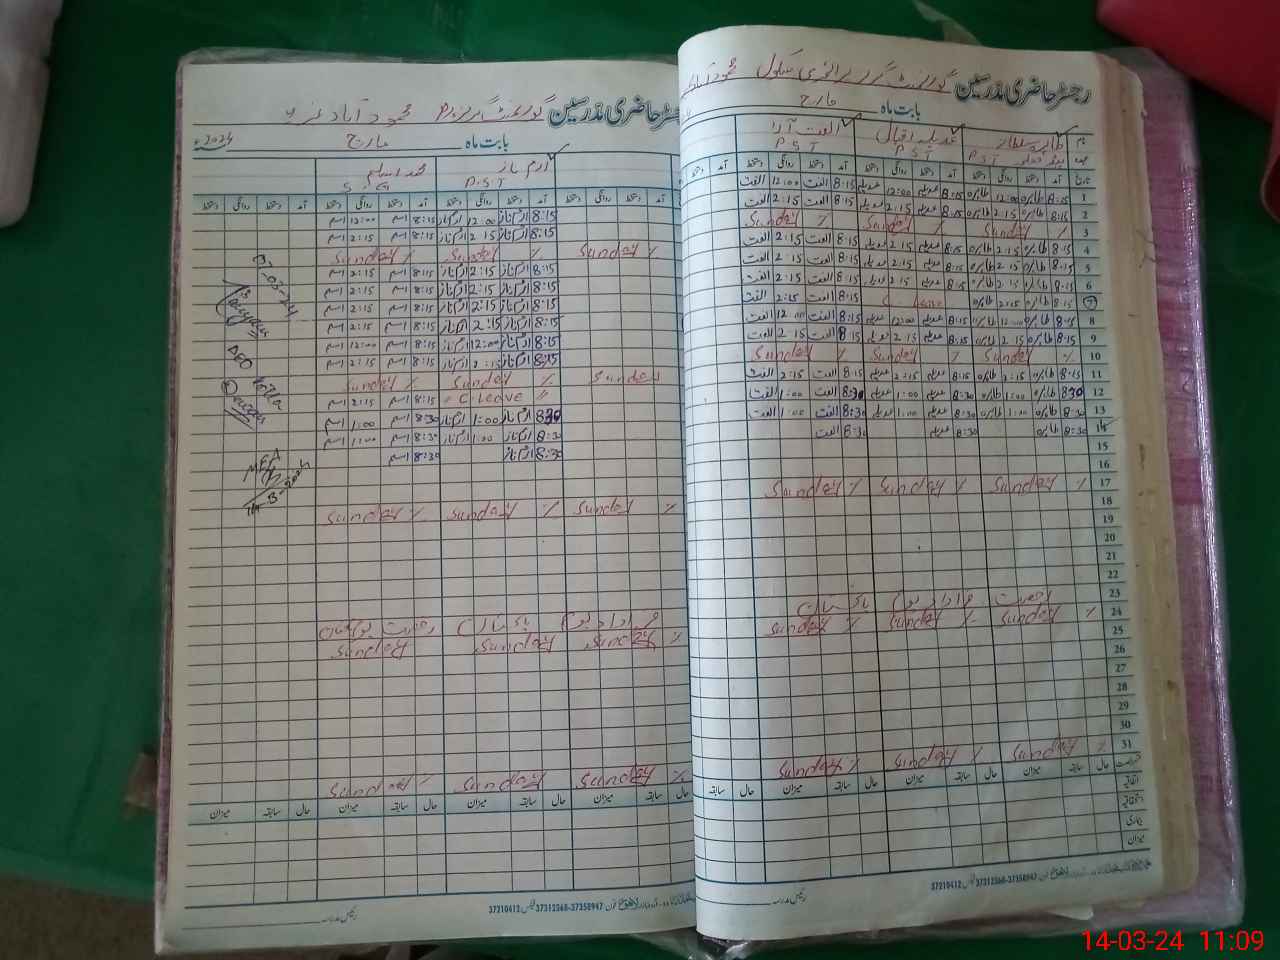 رجسٹر حاضری مدرسین گورنمنٹ گرلز پرائمری سکول محمود آباد
بابت ماہ مارچ
نام طاہرہ سلطانہ عدیلہ اقبال الفت آرا
عہدہ P.S.T P.S.T P.S.T
تاریخ آمد دستخط روانگی دستخط آمد دستخط روانگی دستخط آمد دستخط روانگی دستخط آمد دستخط
1 8:15 طاہرہ 12:00 طاہرہ 8:15 عدیلہ 12:00 عدیلہ 8:15 الفت 12:00 الفت
2 8:15 طاہرہ 2:15 طاہرہ 8:15 عدیلہ 2:15 عدیلہ 8:15 الفت 2:15 الفت
3 Sunday Sunday Sunday
4 8:15 طاہرہ 2:15 طاہرہ 8:15 عدیلہ 2:15 عدیلہ 8:15 الفت 2:15 الفت
5 8:15 طاہرہ 2:15 طاہرہ 8:15 عدیلہ 2:15 عدیلہ 8:15 الفت 2:15 الفت
6 8:15 طاہرہ 2:15 طاہرہ 8:15 عدیلہ 2:15 عدیلہ 8:15 الفت 2:15 الفت
7 8:15 طاہرہ 2:15 طاہرہ C. Leave 8:15 الفت 2:15 الفت
8 8:15 طاہرہ 12:00 طاہرہ 8:15 عدیلہ 12:00 عدیلہ 8:15 الفت 12:00 الفت
9 8:15 طاہرہ 2:15 طاہرہ 8:15 عدیلہ 2:15 عدیلہ 8:15 الفت 2:15 الفت
10 Sunday Sunday Sunday
11 8:15 طاہرہ 2:15 طاہرہ 8:15 عدیلہ 2:15 عدیلہ 8:15 الفت 2:15 الفت
12 8:30 طاہرہ 1:00 طاہرہ 8:30 عدیلہ 1:00 عدیلہ 8:30 الفت 1:00 الفت
13 8:30 طاہرہ 1:00 طاہرہ 8:30 عدیلہ 1:00 عدیلہ 8:30 الفت 1:00 الفت
14 8:30 طاہرہ 8:30 عدیلہ 8:30 الفت
15
16
17 Sunday Sunday Sunday
18
19
20
21
22
23 قرارداد پاکستان
24 Sunday Sunday Sunday
25
26
27
28
29
30
31 Sunday Sunday Sunday
حال سابقہ میزان حال سابقہ میزان حال سابقہ میزان حال سابقہ
اتفاقیہ
بیماری
میزان
رئیس مدرسہ
37210412 37312368-37358947
رجسٹر حاضری مدرسین گورنمنٹ گرلز محمود آباد
بابت ماہ مارچ 2024ء
ارم ناز محمد اسلم
P.S.T
آمد دستخط روانگی دستخط آمد دستخط روانگی دستخط آمد دستخط روانگی دستخط آمد دستخط روانگی دستخط
8:15 ارم ناز 12:00 ارم ناز 8:15 اسلم 12:00 اسلم
8:15 ارم ناز 2:15 ارم ناز 8:15 اسلم 2:15 اسلم
Sunday Sunday Sunday
8:15 ارم ناز 2:15 ارم ناز 8:15 اسلم 2:15 اسلم
8:15 ارم ناز 2:15 ارم ناز 8:15 اسلم 2:15 اسلم
8:15 ارم ناز 2:15 ارم ناز 8:15 اسلم 2:15 اسلم
8:15 ارم ناز 2:15 ارم ناز 8:15 اسلم 2:15 اسلم
8:15 ارم ناز 12:00 ارم ناز 8:15 اسلم 12:00 اسلم
8:15 ارم ناز 2:15 ارم ناز 8:15 اسلم 2:15 اسلم
Sunday Sunday Sunday
C. Leave 8:15 اسلم 2:15 اسلم
8:30 ارم ناز 1:00 ارم ناز 8:30 اسلم 1:00 اسلم
8:30 ارم ناز 1:00 ارم ناز 8:30 اسلم 1:00 اسلم
8:30 ارم ناز 8:30 اسلم
Sunday Sunday Sunday
قرارداد پاکستان
Sunday Sunday Sunday
Sunday Sunday Sunday
حال سابقہ میزان حال سابقہ میزان حال سابقہ میزان حال سابقہ میزان
رئیس مدرسہ
37210412 37312368-37358947
07-03-24
DEO
MEA
14-3-2024
14-03-24 11:09